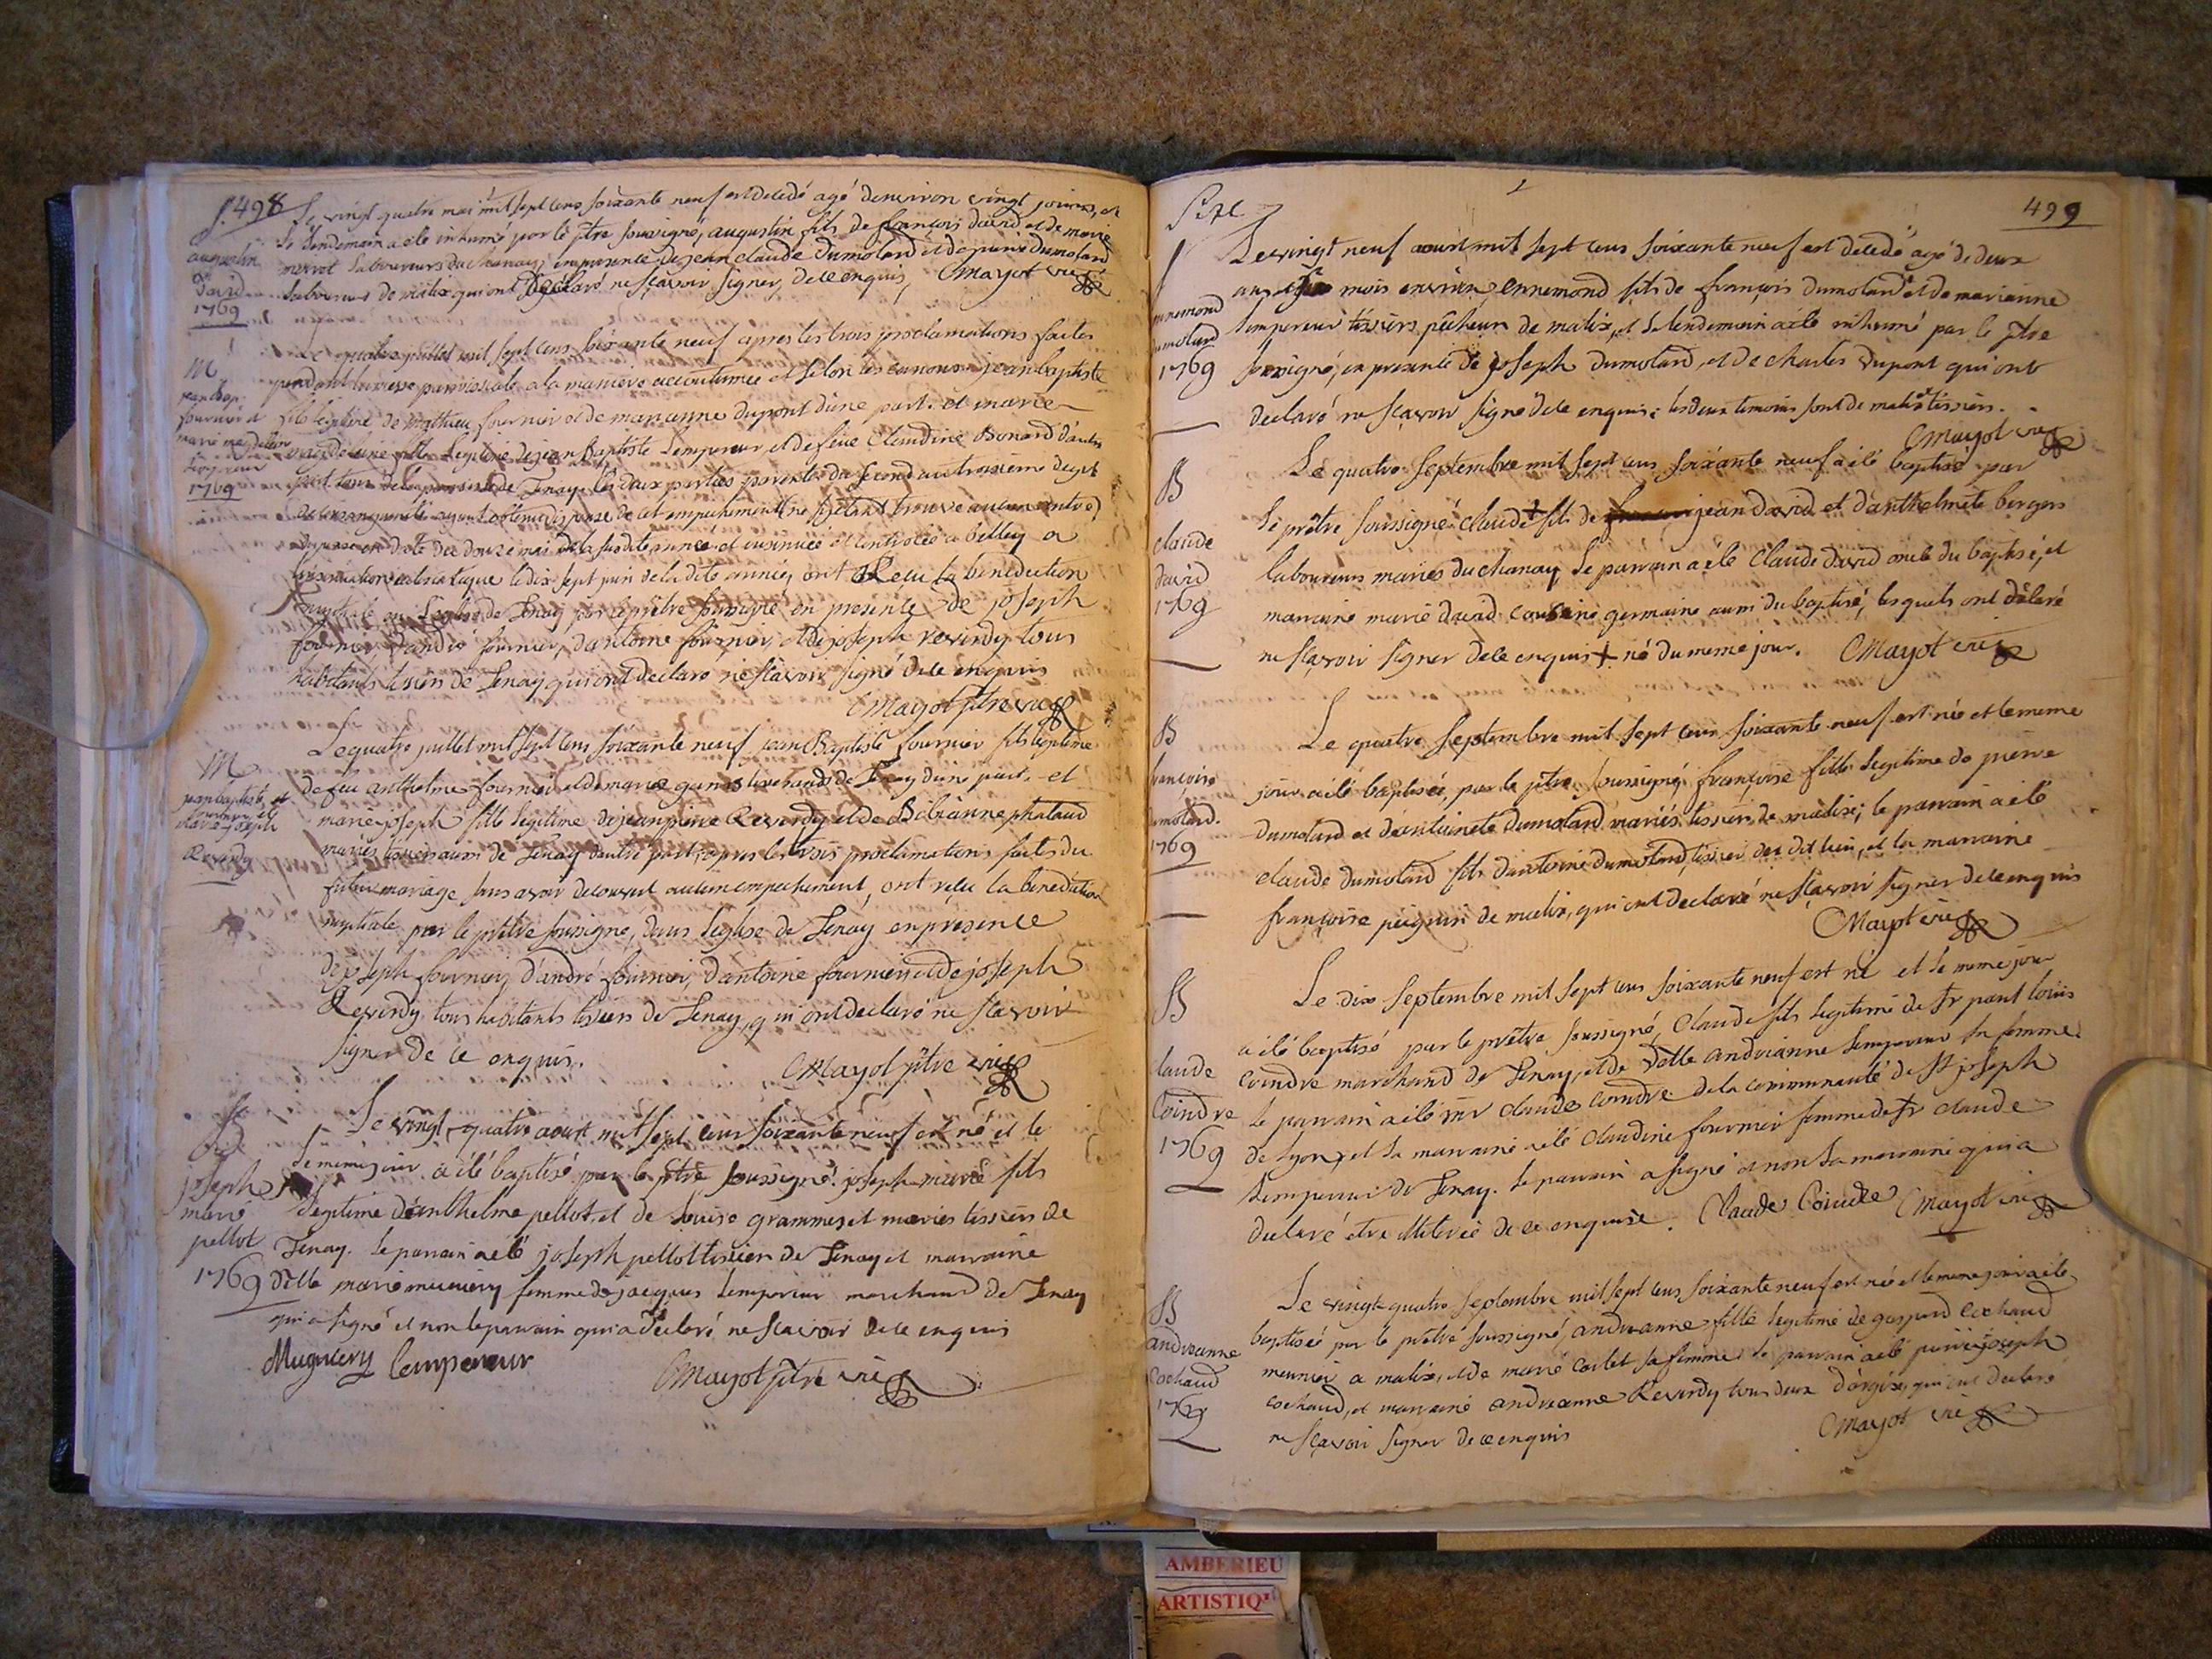 S. 498
Le vingt quatre mai mil sept cens soixante neuf est decedé agé denviron vingt jours, et
le lendemain a ele inhumé par le ptre soussigné, augustin fils de françois david et de marie
laboureurs du chanay, en presence de jean claude dumolard et de pierre dumolard
laboureurs de malix qui ont declaré ne sçavoir signer, de ce enquis, Mayot vic
augustin
david
1769
M
jean bap.
fournier et
marie magdelon
Lempereur
1769
Le quatre juillet mil sept cens soixante neuf apres les trois proclamations faites
pendant la messe parroissiale a la maniere accoutumée et selon les canons jean baptiste
fils legitime de mathieu fournier et de marianne dupont d'une part. et marie
magdeleine fille legitime de jean baptiste Lempereur et de feüe Claudine Bonard d'autre
part tous de la parroisse de Tenay. les deux parties parentes du second au troisieme degré
de consanguinité ayant obtenu dispense de cet empechement (ne s'y étant trouvé aucun autre)
dispense en date du douze mai de la susdite année et insinuée et controlée a belley a
linsinuation eclesiastique le dix sept juin de la dite année, ont Recu la benediction
nuptiale en l'eglise de Tenay par le prêtre soussigné en presence de joseph
fournier, d'andré fournier, d'antoine fournier, et de joseph reverdy tous
habitants tissiers de Tenay qui ont declaré ne sçavoir signé de ce enquis
Mayot ptre vic
M
jean baptiste
fournier et
marie joseph
Reverdy
Le quatre juillet mil sept cens soixante neuf jean Baptiste fournier fils legitime
de feu anthelme fournier et de marie de Tenay d'une part. et
marie joseph fille legitime de jean pierre Reverdy et de Bibianne phalaud
mariés tissiers aussi de Tenay d'autre part; apres les trois proclamations faites du
futur mariage sans avoir decouvert aucun empechement, ont reçu la benediction
nuptiale par le prêtre soussigné, dans l'eglise de Tenay en presence
de joseph fournier, d'andré fournier, d'antoine fournier, et de joseph
Reverdy tous habitants tissiers de Tenay, qui ont declaré ne sçavoir
signer de ce enquis.
Mayot ptre vic
B
joseph
marie
pellot
1769
Le vingt-quatre aoust mil sept cens soixante neuf est né et le
le meme jour a élé baptisé par le ptre soussigné joseph-marie fils
legitime d'anthelme pellot, et de Louise grammaset mariés tissiers de
Tenay. le parrain a élé joseph pellot tissier de Tenay et marraine
delle marie mugniery femme de jacques Lempereur marchand de Tenay
qui a signé et non le parrain qui a declaré ne sçavoir de ce enquis
Mugniery lempereur
Mayot ptre vic
499
S
ennemond
dumolard
1769
Le vingt neuf aoust mil sept cens soixante neuf est decedé agé de deux
ans mois environ, ennemond fils de françois dumolard et de marianne
Lempereur tissiers pêcheurs de malix, et le lendemain a élé inhumé par le ptre
soussigné, en presente de joseph dumolard, et de charles dupont qui ont
declaré ne sçavoir signé de ce enquis: les deux temoins sont de malix tissiers.
Mayot vic
B
claude
david
1769
Le quatre Septembre mil sept cens soixante neuf a élé baptisé par
le prêtre soussigné claude + fils de jean david et d'anthelmete berger
laboureurs mariés du chanay le parrain a élé Claude david oncle du baptisé, et
marraine marie david cousine germaine aussi du baptisé, lesquels ont declaré
ne sçavoir signer de ce enquis + né du meme jour. Mayot vic
B
françoise
dumolard.
1769
Le quatre Septembre mil sept cens soixante neuf est née et le meme
jour a élé baptisée, par le ptre soussigné françoise fille legitime de pierre
dumolard et d'antoinete dumolard mariés tissiers de malix; le parrain a élé
claude dumolard fils d'antoine dumolard, tissier du dit lieu, et la marraine
françoise peignin de malix, qui ont declaré ne sçavoir signer de ce enquis
Mayot vic
B
claude
Coindre
1769
Le dix Septembre mil sept cens soixante neuf est né et le meme jour
a élé baptisé par le prêtre soussigné, Claude fils legitime de sr paul louis
coindre marchand de Tenay, et de delle andréanne Lempereur sa femme.
Le parrain a élé sr claude coindre de la communauté de St joseph
de lyon, et la marraine a élé claudine fournier femme de sr claude
Lempereur de Tenay. le parrain a signé et non la marraine qui a
declaré etre illiterée de ce enquise. Claude Coindre Mayot vic
B
andréanne
Cochaud
1769
Le vingt quatre Septembre mil sept cens soixante neuf est née et le meme jour a élé
baptisée par le prêtre soussigné, andréanne fille legitime de gaspard Cochaud
meunier a malix, et de marie carlet sa femme le parrain a élé pierre joseph
cochaud, et marraine andréanne Reverdy tous deux d'argix, qui ont declaré
ne sçavoir signer de ce enquis
Mayot vic
AMBERIEU
ARTISTIQ